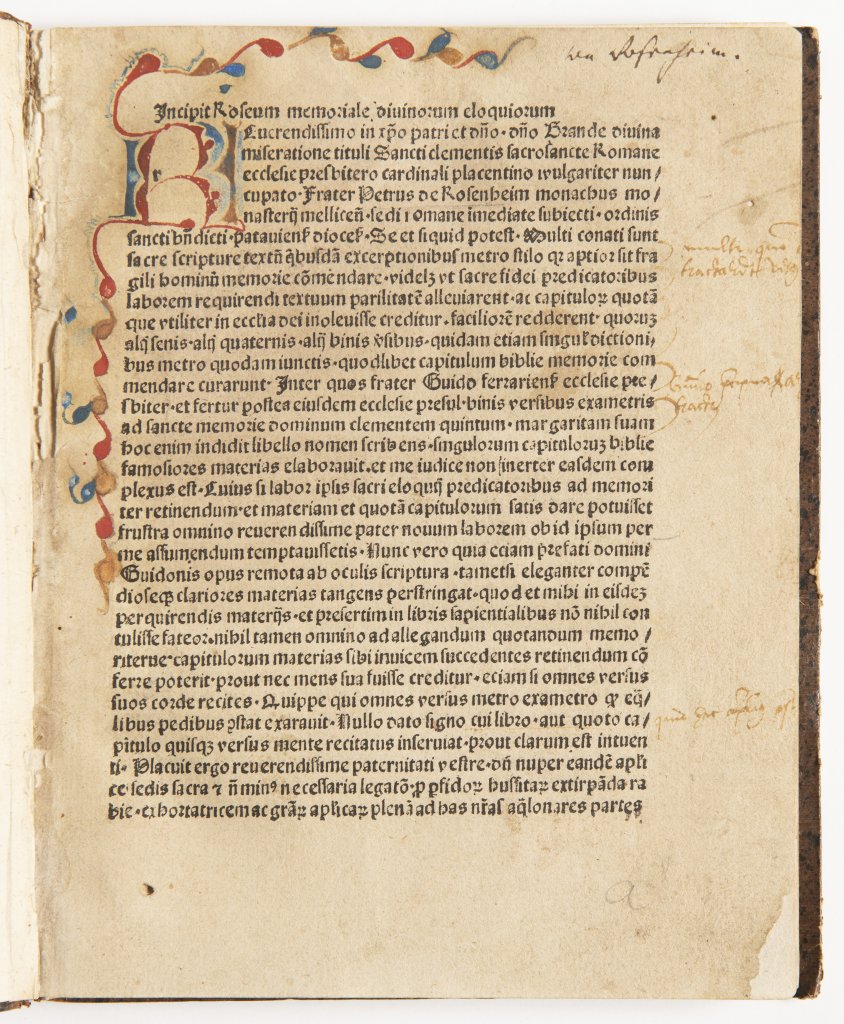 von Rosenheim.
Incipit Roseum memoriale diuinorum eloquiorum
REuerendissimo in xp̄o patri et dn̄o · dn̄o Brande diuina
miseratione tituli Sancti clementis sacrosancte Romane
ecclesie presbitero cardinali placentino wulgariter nun⸗
cupato · Frater Petrus de Rosenheim monachus mo⸗
nasterij mellicen̄ · sedi romane īmediate subiecti · ordinis
sancti bn̄dicti · patauienẜ dioceẜ · Se et si quid potest · Multi conati sunt
sacre scripture textū q̇busdā exceptionibus metro stilo qr aptior sit fra
gili hominū memorie cōmendare · videlꝫ vt sacre fidei predicatoribus
laborem requirendi textuum parilitatē alleuiarent · ac capitulorꝝ quotā
que vtiliter in eccl̄ia dei inoleuisse creditur · faciliorē redderent · quoruꝫ
alij senis · alij quaternis · alij binis v̄sibus · quidam etiam singul̓ dictioni⸗
bus metro quodam iunctis · quodlibet capitulum biblie memorie com
mendare curarunt · Inter quos frater Guido ferrarienẜ ecclesie pre⸗
sbiter · et fertur postea eiusdem ecclesie presul · binis versibus exametris
ad sancte memorie dominum clementem quintum · margaritam suam
hoc enim indidit libello nomen scribens · singulorum capituloruꝫ biblie
famosiores materias elaborauit · et me iudice non inerter easdem com
plexus est · Cuius si labor ipsis sacri eloquij predicatoribus ad memori
ter retinendum · et materiam et quotā capitulorum satis dare potuisset
frustra omnino reuerendissime pater nouum laborem ob id ipsum per
me assumendum temptauissetis · Nunc vero quia eciam p̄refati domini
Guidonis opus remota ab oculis scriptura · tametsi eleganter compē
dioseqꝫ clariores materias tangens perstringat · quod et mihi in eisdeꝫ
perquirendis materijs · et presertim in libris sapientialibus nō nihil con
tulisse fateor · nihil tamen omnino ad allegandum quotandum memo⸗
riterue capitulorum materias sibi inuicem succedentes retinendum cō
ferre poterit · prout nec mens sua fuisse creditur · eciam si omnes versus
suos corde recites · Quippe qui omnes versus metro exametro ꝙ eq̄⸗
libus pedibus ꝯstat exarauit · Nullo dato signo cui libro · aut quoto ca⸗
pitulo quisqꝫ versus mente recitatus inseruiat · prout clarum est intuen
ti · Placuit ergo reuerendissime paternitati vestre · dn̄ nuper eandē apl̄i
ce sedis sacra ⁊ n̄ minꝰ necessaria legatōꝫ ꝓ ꝑfidoꝝ hussitaꝝ extirpāda ra
bie · exhortatricem ac gr̄aꝝ aplicaꝝ plenā ad has nr̄as aq̇lonares partes